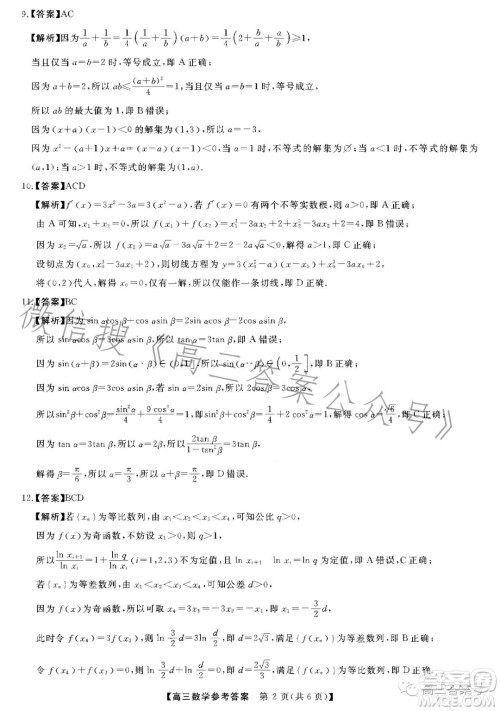 9.【答案】AC
【解析】因为1/a+1/b=1/4(1/a+1/b)(a+b)=1/4(2+b/a+a/b)≥1,
当且仅当 a=b=2 时,等号成立,即 A 正确;
因为 a+b=4,所以 ab≤(a+b)²/4=1,当且仅当 a=b=2 时,等号成立,
所以 ab 的最大值为 1,即 B 错误;
因为(x+a)(x-1)<0 的解集为(1,3),所以 a=-3,
因为 x²-(a+1)x+a=(x-a)(x-1)<0,当 a=1 时,不等式的解集为∅;当 a<1 时,不等式的解集为
(a,1);当 a>1 时,不等式的解集为(1,a).
10.【答案】ACD
【解析】f′(x)=3x²-3a=3(x²-a),若 f′(x)=0 有两个不等实数根,则 a>0,即 A 正确;
由 A 可知,x₁+x₂=0,所以 f(x₁)+f(x₂)=x₁³-3ax₁+2+x₂³-3ax₂+2=4,即 B 错误;
因为 x₂=√a,所以 f(x₂)=a√a-3a√a+2=2-2a√a<0,解得 a>1,即 C 正确;
设切点为(x₀,x₀³-3ax₀+2),则切线方程为 y=3(x₀²-a)(x-x₀)+x₀³-3ax₀+2,
将(0,2)代入,解得 x₀=0,所以仅能作一条切线,即 D 正确.
11.【答案】BC
【解析】因为 sin αcos β+cos αsin β=2sin αcos β-2cos αsin β,
所以 sin αcos β=3cos αsin β,所以 tan α=3tan β,即 A 错误;
因为
所以 sin²β+cos²β=sin²α/4+9cos²α/4=1/4+2cos²α=1,解得 cos α=√6/4,即 C 正确;
因为 tan α=3tan β,所以 α=2β,所以 2tan β/(1-tan²β)=3tan β,
解得 β=π/6,所以 α=π/3,所以 D 错误.
12.【答案】BCD
【解析】若{xₙ}为等比数列,由 x₁<x₂<x₃<x₄,可知公比 q>0,
因为 f(x)为奇函数,不妨设 x₁>0,则 0<x₁<x₂<x₃<x₄,
所以 ln xᵢ₊₁/ln xᵢ=1+ln q/ln xᵢ(i=1,2,3)不为定值,且 ln xᵢ₊₁-ln xᵢ=ln q 为定值,即 A 错误,B 正确;
若{xₙ}为等差数列,由 x₁<x₂<x₃<x₄,可知公差 d>0,
因为 f(x)为奇函数,所以可取 x₄=3x₃=-3x₂=-x₁,所以 x₁=-3/2d,
此时令 f(x₄)=3f(x₃),则 ln 3/2d=3ln d/2,即 d=2√3,满足{f(xₙ)}为等差数列,即 C 正确;
令 f(x₄)=-f(x₃),则 ln 3/2d=-ln d/2,即 d=2√3/3,满足{f(xₙ)}为等比数列,即 D 正确.
【高三数学参考答案 第 2 页(共 6 页)】
微信搜《高三答案公众号》
高三答案